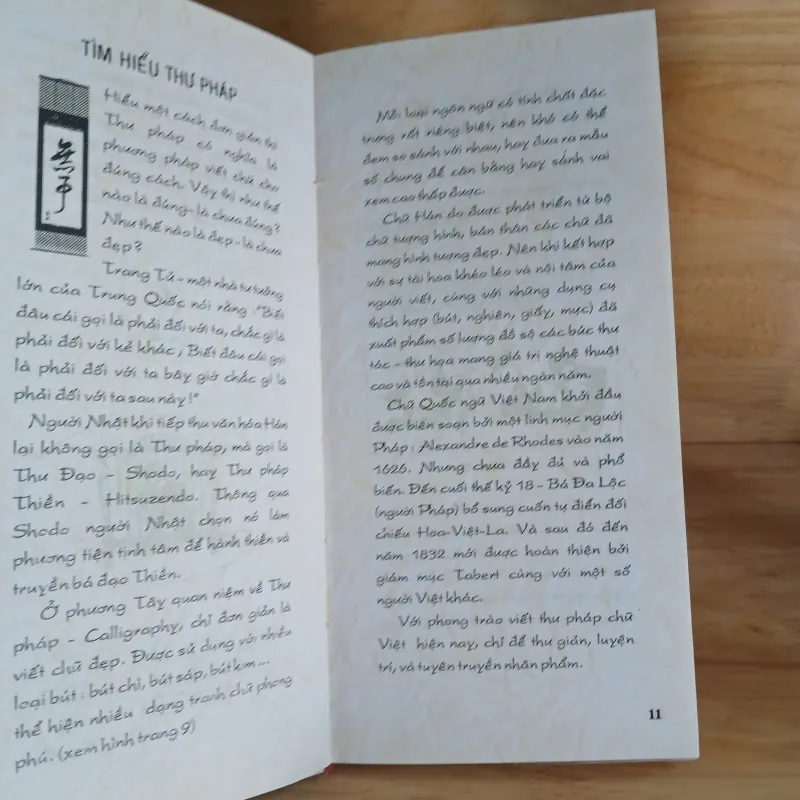 TÌM HIỂU THƯ PHÁP
Hiểu một cách đơn giản thì
Thư pháp có nghĩa là
phương pháp viết chữ cho
đúng cách. Vậy thì như thế
nào là đúng- là chưa đúng?
Như thế nào là đẹp- là chưa
đẹp?
Trang Tử - một nhà tư tưởng
lớn của Trung Quốc nói rằng :"Biết
đâu cái gọi là phải đối với ta, chắc gì là
phải đối với kẻ khác, Biết đâu cái gọi
là phải đối với ta bây giờ chắc gì là
phải đối với ta sau này!"
Người Nhật khi tiếp thu văn hóa Hán
lại không gọi là Thư pháp, mà gọi là
Thư Đạo - Shodo, hay Thư pháp
Thiền - Hitsuzendo. Thông qua
Shodo người Nhật chọn nó làm
phương tiện tịnh tâm để hành thiền và
truyền bá đạo Thiền.
Ở phương Tây quan niệm về Thư
pháp - Calligraphy, chỉ đơn giản là
viết chữ đẹp. Được sử dụng với nhiều
loại bút : bút chì, bút sáp, bút kim ...
thể hiện nhiều dạng tranh chữ phong
phú. (xem hình trang 9)
Mỗi loại ngôn ngữ có tính chất đặc
trưng rất riêng biệt, nên khó có thể
đem so sánh với nhau, hay đưa ra mẫu
số chung để cân bằng hay sánh vai
xem cao thấp được.
Chữ Hán do được phát triển từ bộ
chữ tượng hình, bản thân các chữ đã
mang hình tượng đẹp. Nên khi kết hợp
với sự tài hoa khéo léo và nội tâm của
người viết, cùng với những dụng cụ
thích hợp (bút, nghiên, giấy, mực) đã
xuất phẩm số lượng đồ sộ các bức thư
tác - thư họa mang giá trị nghệ thuật
cao và tồn tại qua nhiều ngàn năm.
Chữ Quốc ngữ Việt Nam khởi đầu
được biên soạn bởi một linh mục người
Pháp : Alexandre de Rhodes vào năm
1626. Nhưng chưa đầy đủ và phổ
biến. Đến cuối thế kỷ 18 - Bá Đa Lộc
(người Pháp) bổ sung cuốn tự điển đối
chiếu Hoa-Việt-La. Và sau đó đến
năm 1832 mới được hoàn thiện bởi
giám mục Tabert cùng với một số
người Việt khác.
Với phong trào viết thư pháp chữ
Việt hiện nay, chỉ để thư giãn, luyện
trí, và tuyên truyền nhân phẩm.
11